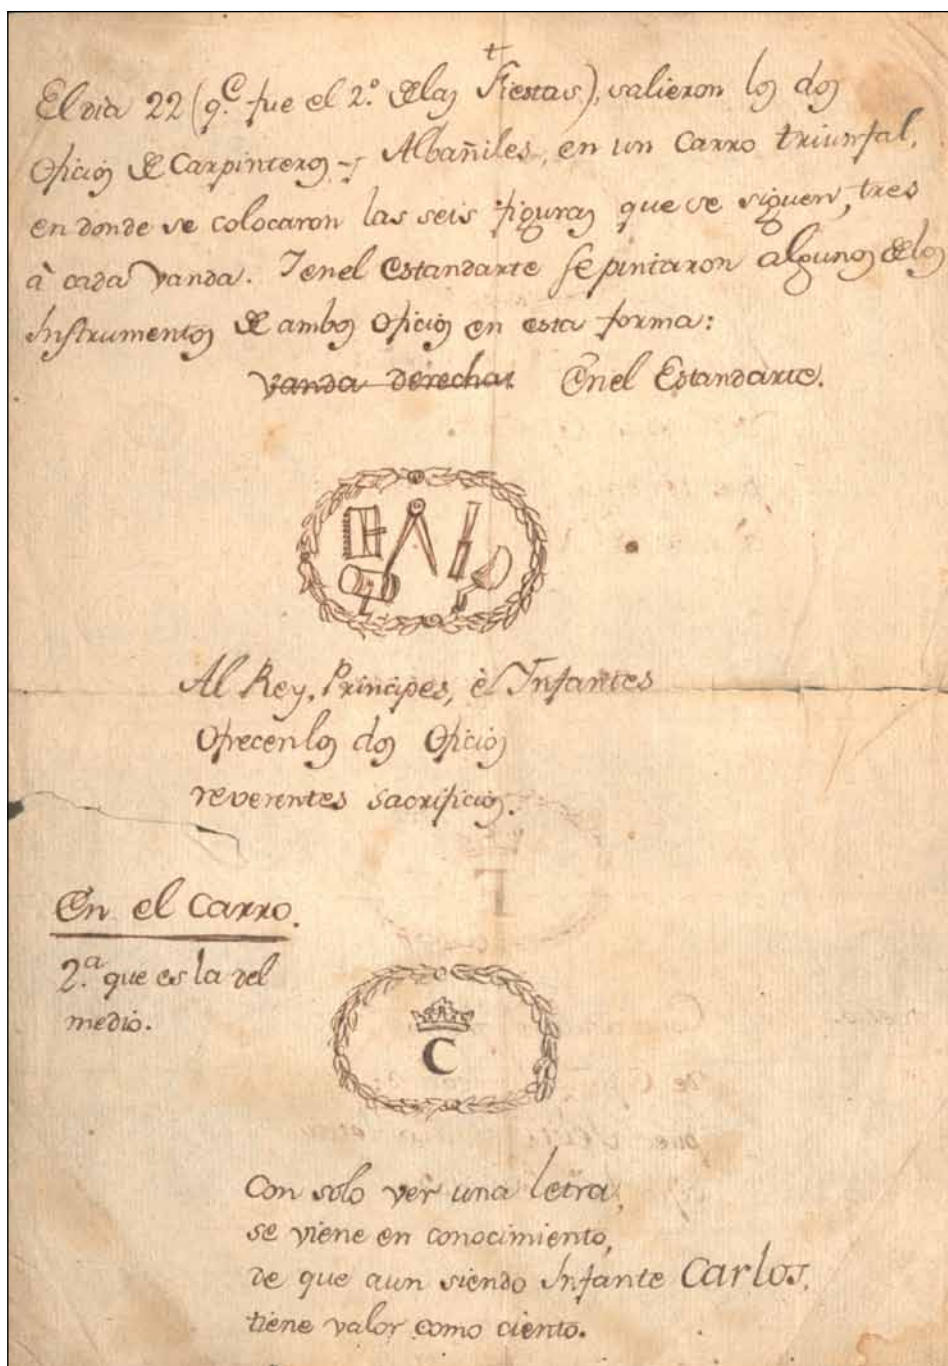 t
El dia 22 (q.e fue el 2.º de las Fiestas), salieron los dos
Oficios de Carpinteros y Albañiles, en un Carro triunfal,
en donde se colocaron las seis figuras que se siguen, tres
à cada vanda. Y en el Estandarte se pintaron algunos de los
Instrumentos de ambos Oficios en esta forma:
vanda derecha. En el Estandarte.
Al Rey, Principes, è Infantes
Ofrecen los dos Oficios
reverentes sacrificios.
En el Carro.
2.a que es la del
medio.
C
Con solo ver una letra,
se viene en conocimiento,
de que aun siendo Infante Carlos,
tiene valor como ciento.